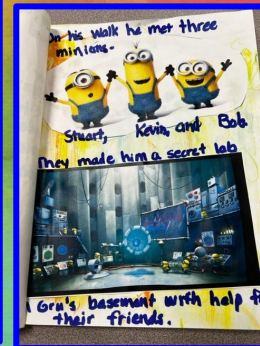 On his walk he met three
minions.
Stuart, Kevin, and Bob
They made him a secret lab
Gru's basement with help f
their friends.